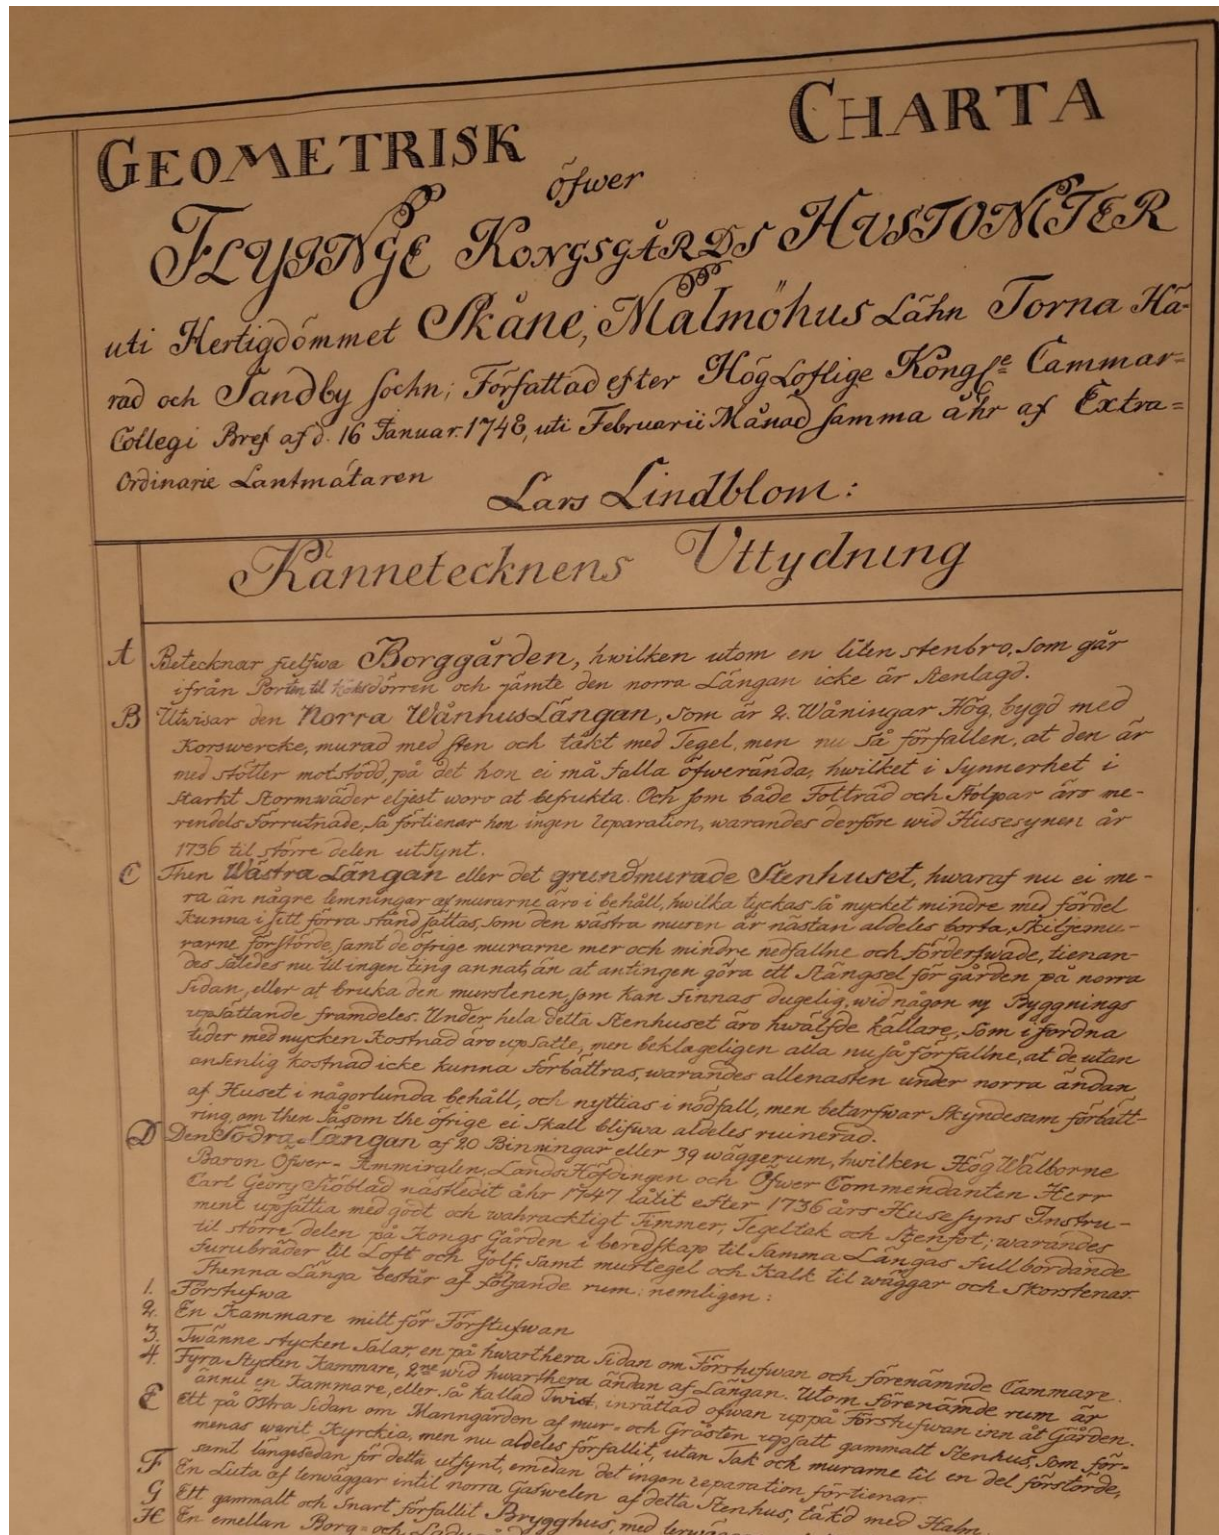 GEOMETRISK CHARTA
öfwer
FLYINGE KONGSGÅRDS HUSTOMTER
uti Hertigdömmet Skåne, Malmöhus Lähn Torna Hä-
rad och Sandby Sochn; Författad efter Högloflige Kongl.e Cammar=
Collegi Bref af d. 16 Januar. 1748, uti Februarii Månad samma åhr af Extra=
Ordinarie Lantmätaren
Lars Lindblom:
Kännetecknens Uttydning
A Betecknar sielfwa Borggården, hwilken utom en liten stenbro, som går
ifrån Porten til och jämte den norra Längan icke är Stenlagd.
B Utwisar den Norra WånhusLängan, som är 2. Wåningar Hög, bygd med
Korswercke, murad med sten och täkt med Tegel, men nu så förfallen, at den är
med stötter motstödd, på det hon ei må falla öfwerända, hwilket i Synnerhet i
starkt Stormwäder eljest woro at befrukta. Och som både Fotträd och Stolpar äro me-
rendels förrutnade, så förtienar hon ingen reparation, warandes derföre wid Husesynen år
1736 til större delen utsynt.
C Then Wästra Längan eller det grundmurade Stenhuset, hwaraf nu ei me-
ra än någre lemningar af murarne äro i behåll, hwilka tyckas så mycket mindre med fördel
kunna i sitt förra stånd sättas, som den wästra muren är nästan aldeles borta, Skiljemu-
rarne förstörde, samt de öfrige murarne mer och mindre nedfallne och förderfwade, tienan-
des således nu til ingen ting annat, än at antingen göra ett Stängsel för gården på norra
Sidan, eller at bruka den murstenen, som kan finnas dugelig, wid någon ny Byggnings
upsättande framdeles. Under hela detta Stenhuset äro hwälfde källare, som i fordna
tider med mycken Kostnad äro upsatte, men beklageligen alla nu så förfallne, at de utan
ansenlig kostnad icke kunna förbättras, warandes allenasten under norra ändan
af Huset i någorlunda behåll, och nyttias i nödfall, men betarfwar Skyndesam förbätt-
ring, om then såsom the öfrige ei skall blifwa aldeles ruinerad.
D Den Södra Längan af 20 Binningar eller 39 wäggerum, hwilken HögWälborne
Baron Öfwer-Ammiralen, LandsHöfdingen och Öfwer Commendanten Herr
Carl Georg Siöblad nästledit åhr 1747 låtit efter 1736 års Husesyns Instru-
ment upsättia med godt och wahracktigt Timmer, Tegeltak och Stenfot; warandes
til större delen på Kongs Gården i beredskap til samma Längas fullbordande
Furubräder til Loft och Golf, samt murtegel och Kalk til wäggar och Skorstenar.
Thenna Länga består af följande rum; nemligen:
1. Förstufwa
2. En Kammare mitt för Förstufwan
3. Twänne stycken Salar, en på hwarthera Sidan om Förstufwan och förenämnde Cammare.
4. Fyra Stycken Kammare, 2ne wid hwarthera ändan af Längan. Utom förenämde rum är
ännu en Kammare, eller så kallad Twist, inrättad ofwan uppå Förstufwan inn åt Gården.
E Ett på Östra Sidan om Manngården af mur- och Gråsten upsatt gammalt Stenhus, som för-
menas warit Kyrckia, men nu aldeles förfallit, utan Tak och murarne til en del förstörde,
samt längesedan för detta utsynt, emedan det ingen reparation förtienar.
F En Luta af lerwäggar intil norra Gafwelen af detta Stenhus, täkd med Halm.
G Ett gammalt och snart förfallit Brygghus, med
H En emellan Borg- och